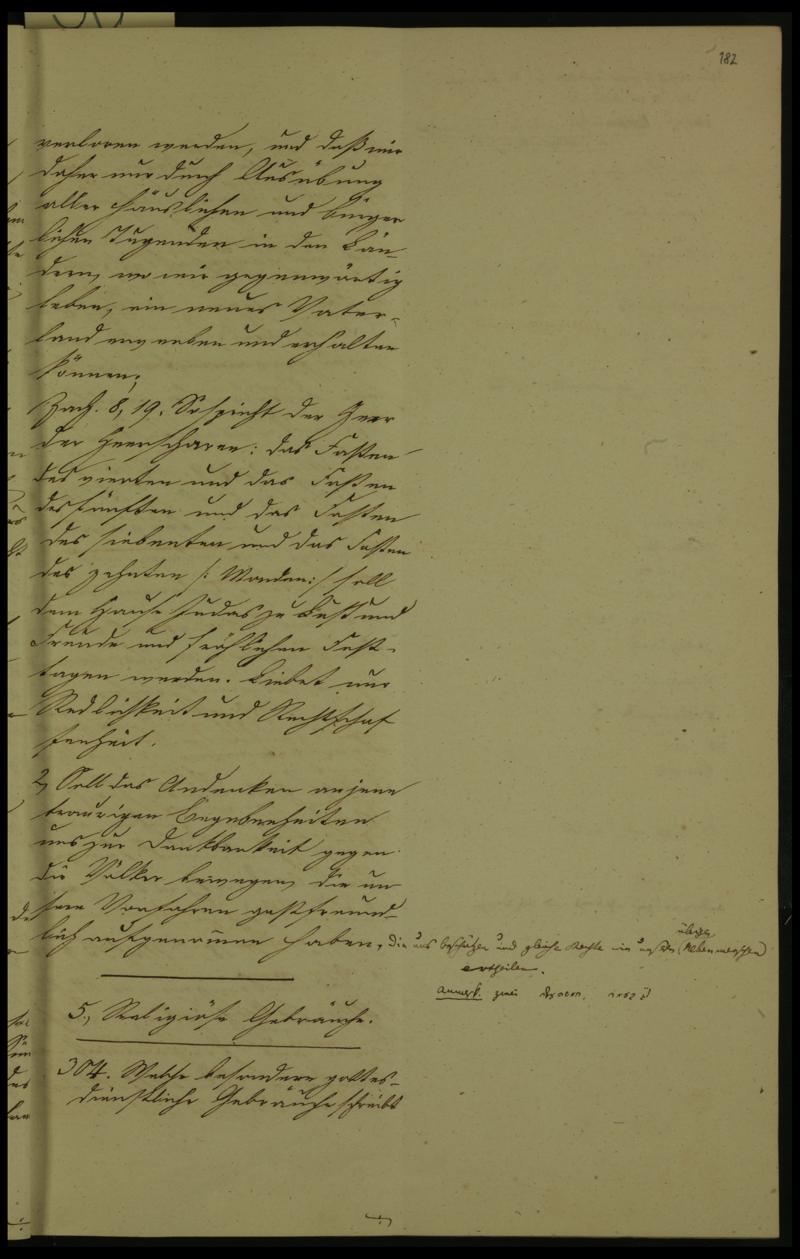 182
verloren werden, und daß wir
daher nur durch Ausübung
aller häuslichen und bürger
lichen Tugenden in den Län-
dern, wo wir gegenwärtig
leben, ein neues Vater-
land erwerben und erhalten
können.
Zach. 8, 19. So spricht der Herr
der Heerscharen: das Fasten
des vierten und das Fasten
des fünften und das Fasten
des siebenten und das Fasten
des zehnten /: Monden :/ soll
dem Hause Judas zu Lust und
Freude und fröhlichen Fest-
tagen werden. Liebet nur
Redlichkeit und Rechtschaf
fenheit.
2, Soll das Andenken an jene
traurigen Begebenheiten
uns zur Dankbarkeit gegen
die Völker bewegen, die un
sere Vorfahren gastfreund-
lich aufgenommen haben, die uns beschützen und gleiche Rechte mit unsern übrigen Nebenmenschen
ertheilen.
Anmerk.
5, Religiöse Gebräuche.
304. Welche besondere gottes-
dienstliche Gebräuche schreibt